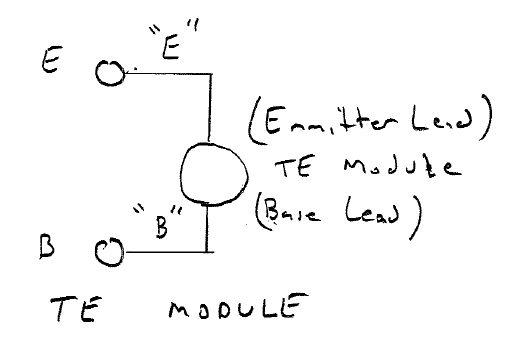 "E"
E
(Emmitter Lead)
TE Module
"B"
(Base Lead)
B
TE MODULE